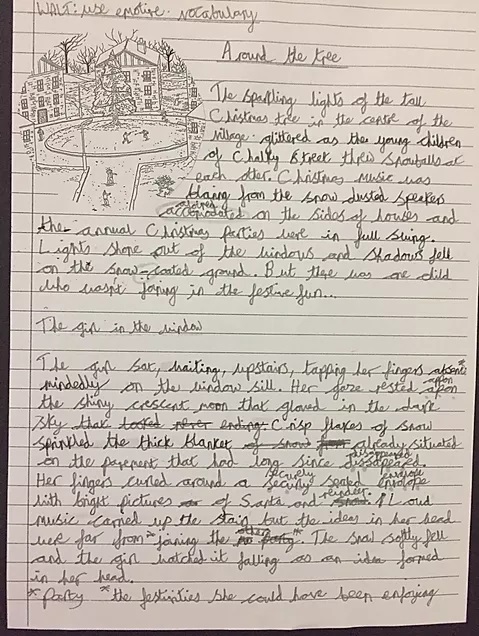 WALT: use emotive vocabulary
Around the tree
The sparkling lights of the tall
Christmas tree in the centre of the
village glittered as the young children
of Chalky Street threw snowballs at
each other. Christmas music was
blaring from the snow dusted speakers
accomodated on the sides of houses and
the annual Christmas parties were in full swing.
Lights shone out of the windows and shadows fell
on the snow-coated ground. But there was one child
who wasn't joining in the festive fun...
The girl in the window
The girl sat, waiting, upstairs, tapping her fingers absent
mindedly on the window sill. Her gaze rested upon
the shiny crescent moon that glowed in the dark
sky that looked never ending. Crisp flakes of snow
sprinkled the thick blanket of snow from already situated
on the pavement that had long since dissapeared.
disappeared
Her fingers curled around a securly sealed envelope
securely envelope
with bright pictures of Santa and reindeer. Loud
music carried up the stairs but the ideas in her head
were far from * joining the other **. The snow softly fell
and the girl watched it falling as an idea formed
in her head.
* Party ** the festivities she could have been enjoying